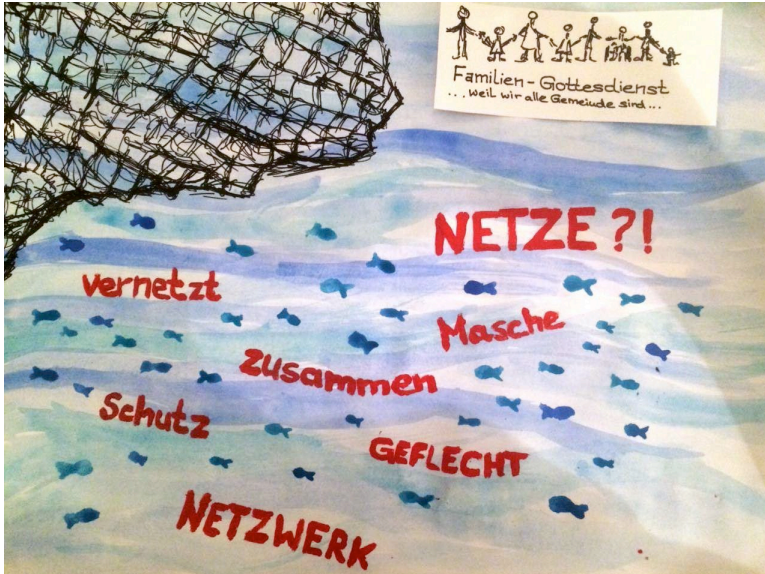 Familien-Gottesdienst
...weil wir alle Gemeinde sind...
NETZE?!
vernetzt
Masche
Zusammen
Schutz
GEFLECHT
NETZWERK